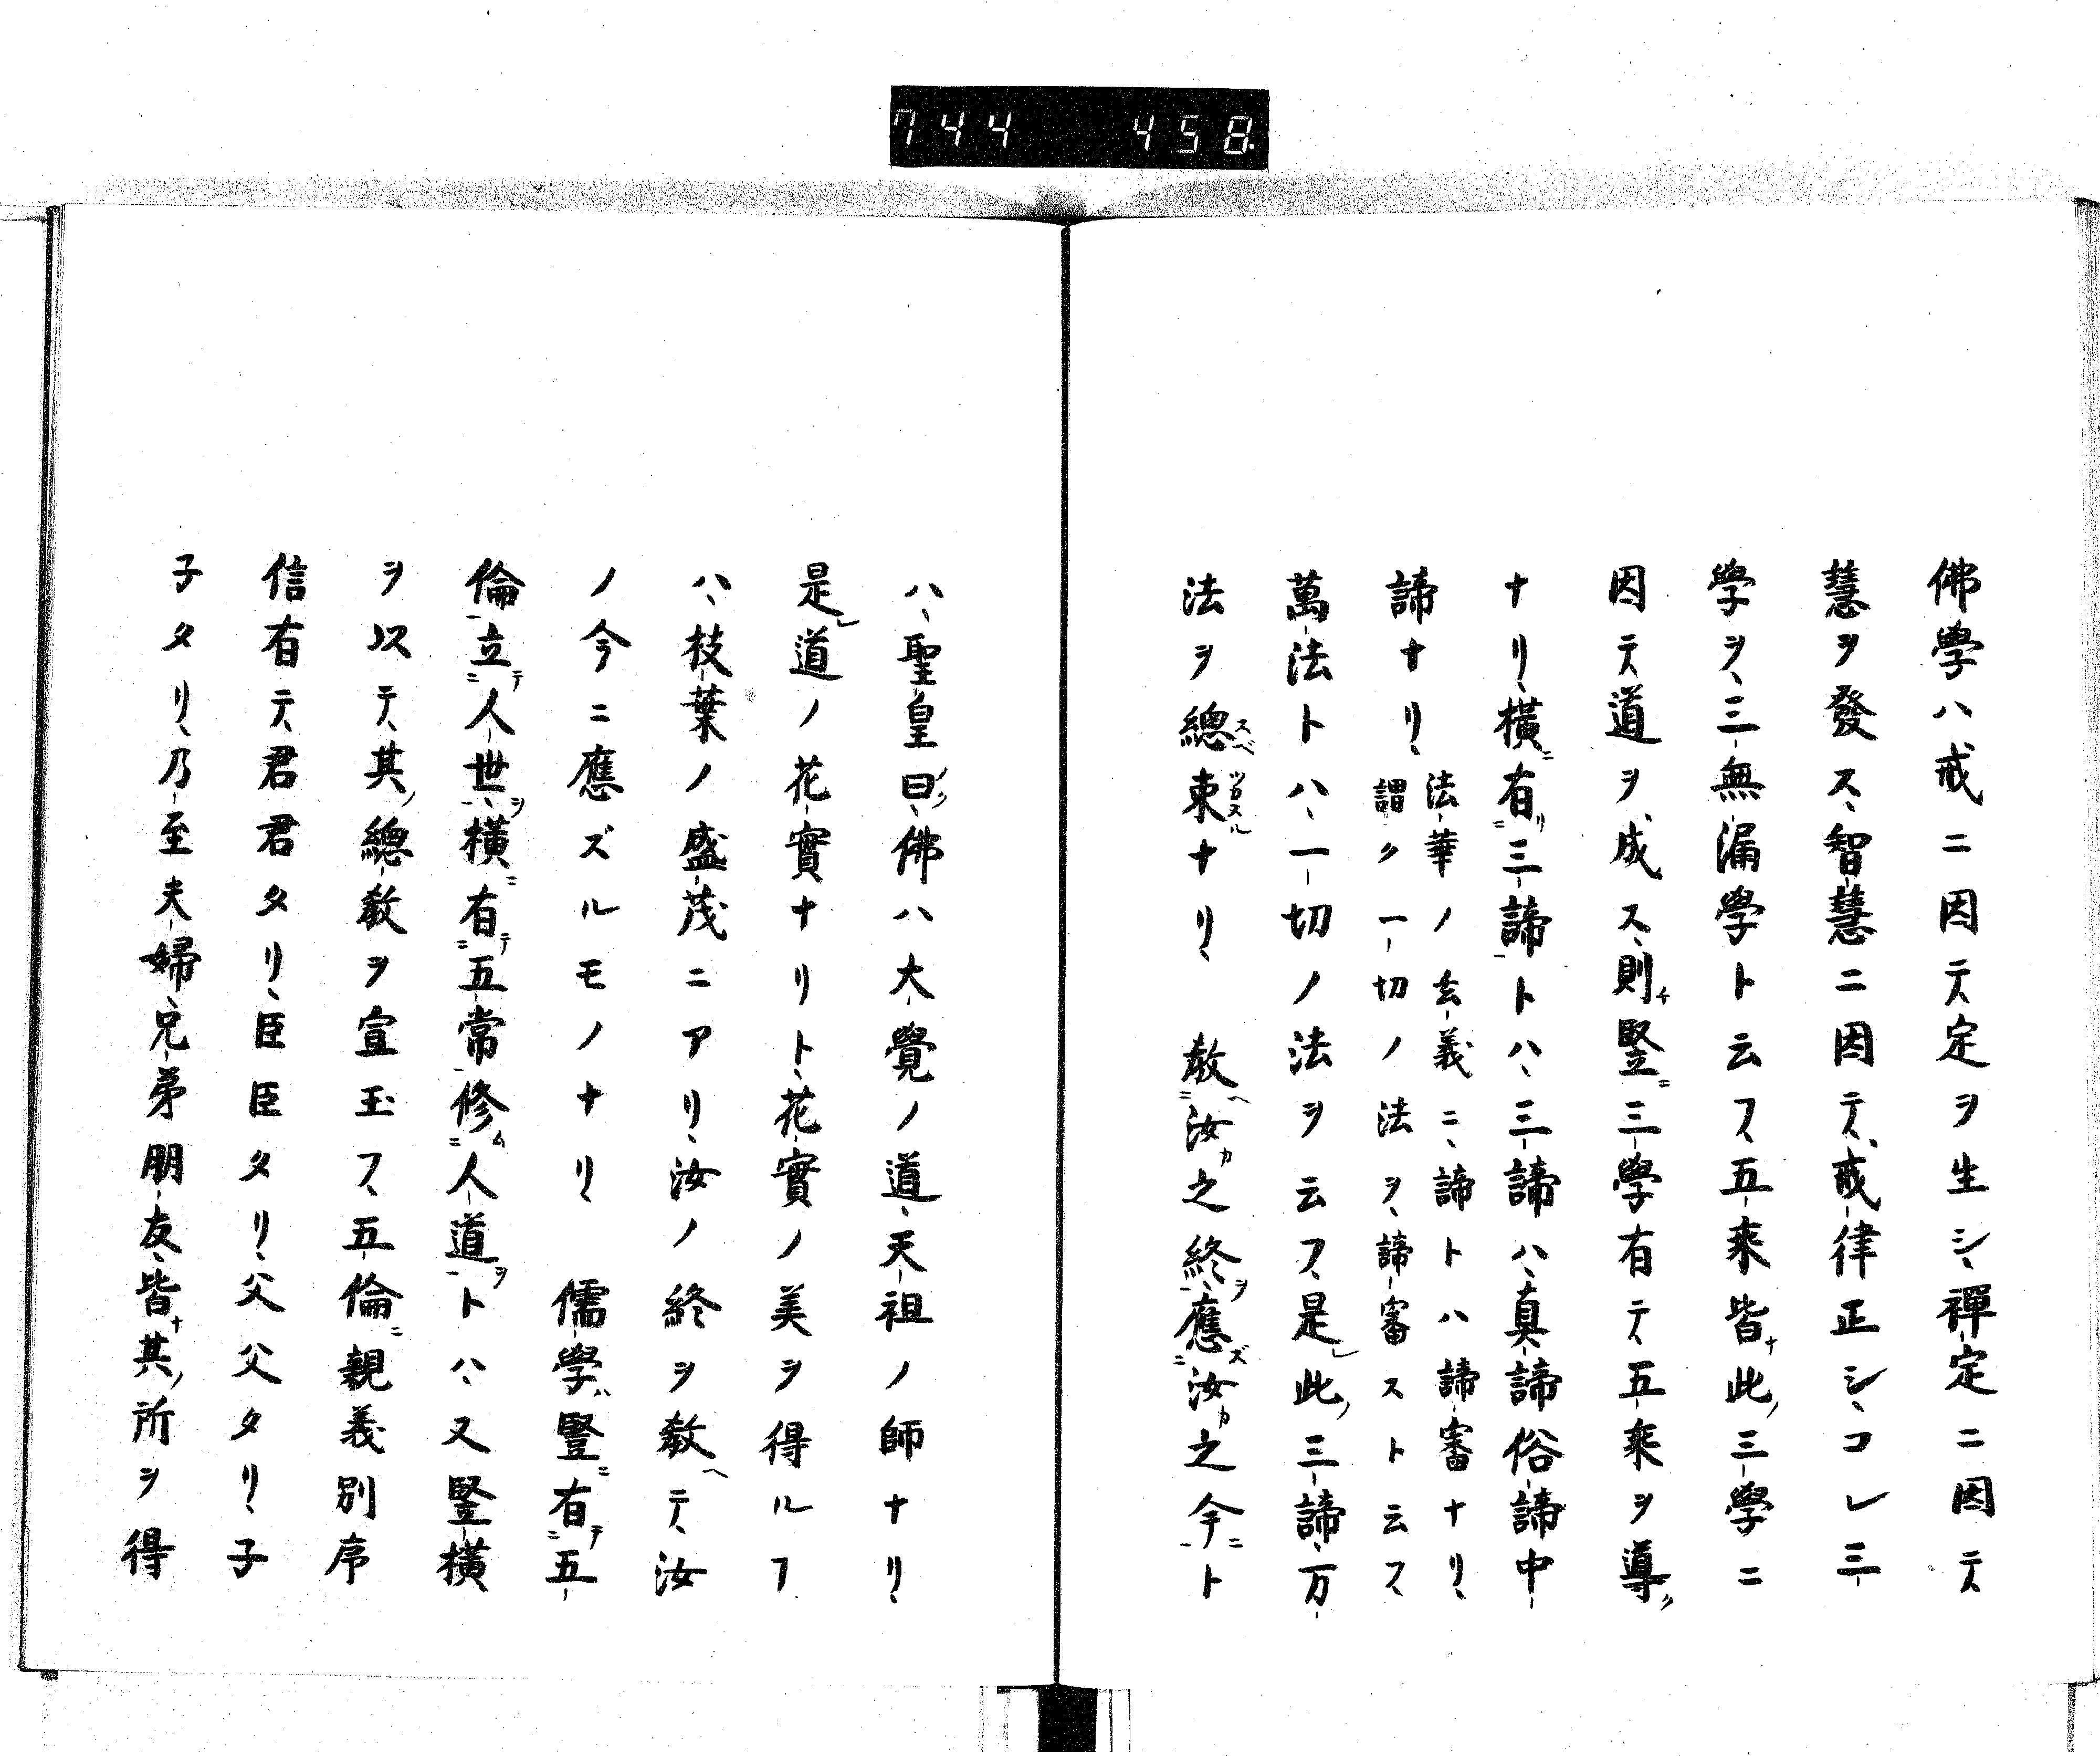 744 458
佛學ハ戒ニ因テ定ヲ生シ、禪定ニ因テ
慧ヲ發ス、智慧ニ因テ、戒律正シ、コレ三
學ヲ、三無漏學ト云フ、五乘皆ナ此ノ三學ニ
因テ道ヲ成ス、則チ竪ニ三學有テ五乘ヲ導ク
ナリ、橫ニ有リ二三諦一トハ、三諦ハ、真諦俗諦中
諦ナリ、法華ノ玄義ニ、諦トハ諦審ナリ、
謂ク一切ノ法ヲ、諦審スト云フ
萬法トハ、一切ノ法ヲ云フ、是レ此ノ三諦、万
法ヲ總スベ束ツカヌルナリ、 教ヘ二汝カ之終ヲ一應ズ二汝カ之今ニ一ト
ハ、聖皇曰ノク、佛ハ大覺ノ道、天祖ノ師ナリ、
是レ道ノ花實ナリト、花實ノ美ヲ得ルヿ
ハ、枝葉ノ盛茂ニアリ、汝ノ終ヲ教ヘテ、汝
ノ今ニ應ズルモノナリ、 儒學ハ竪ニ有テ二五
倫一立テ二人世ヲ一、橫ニ有テ二五常一修ム二人道ヲ一トハ、又竪橫
ヲ以テ、其ノ總教ヲ宣玉フ、五倫ニ親義別序
信有テ、君君タリ、臣臣タリ、父父タリ、子
子タリ、乃至夫婦、兄弟朋友、皆ナ其ノ所ヲ得